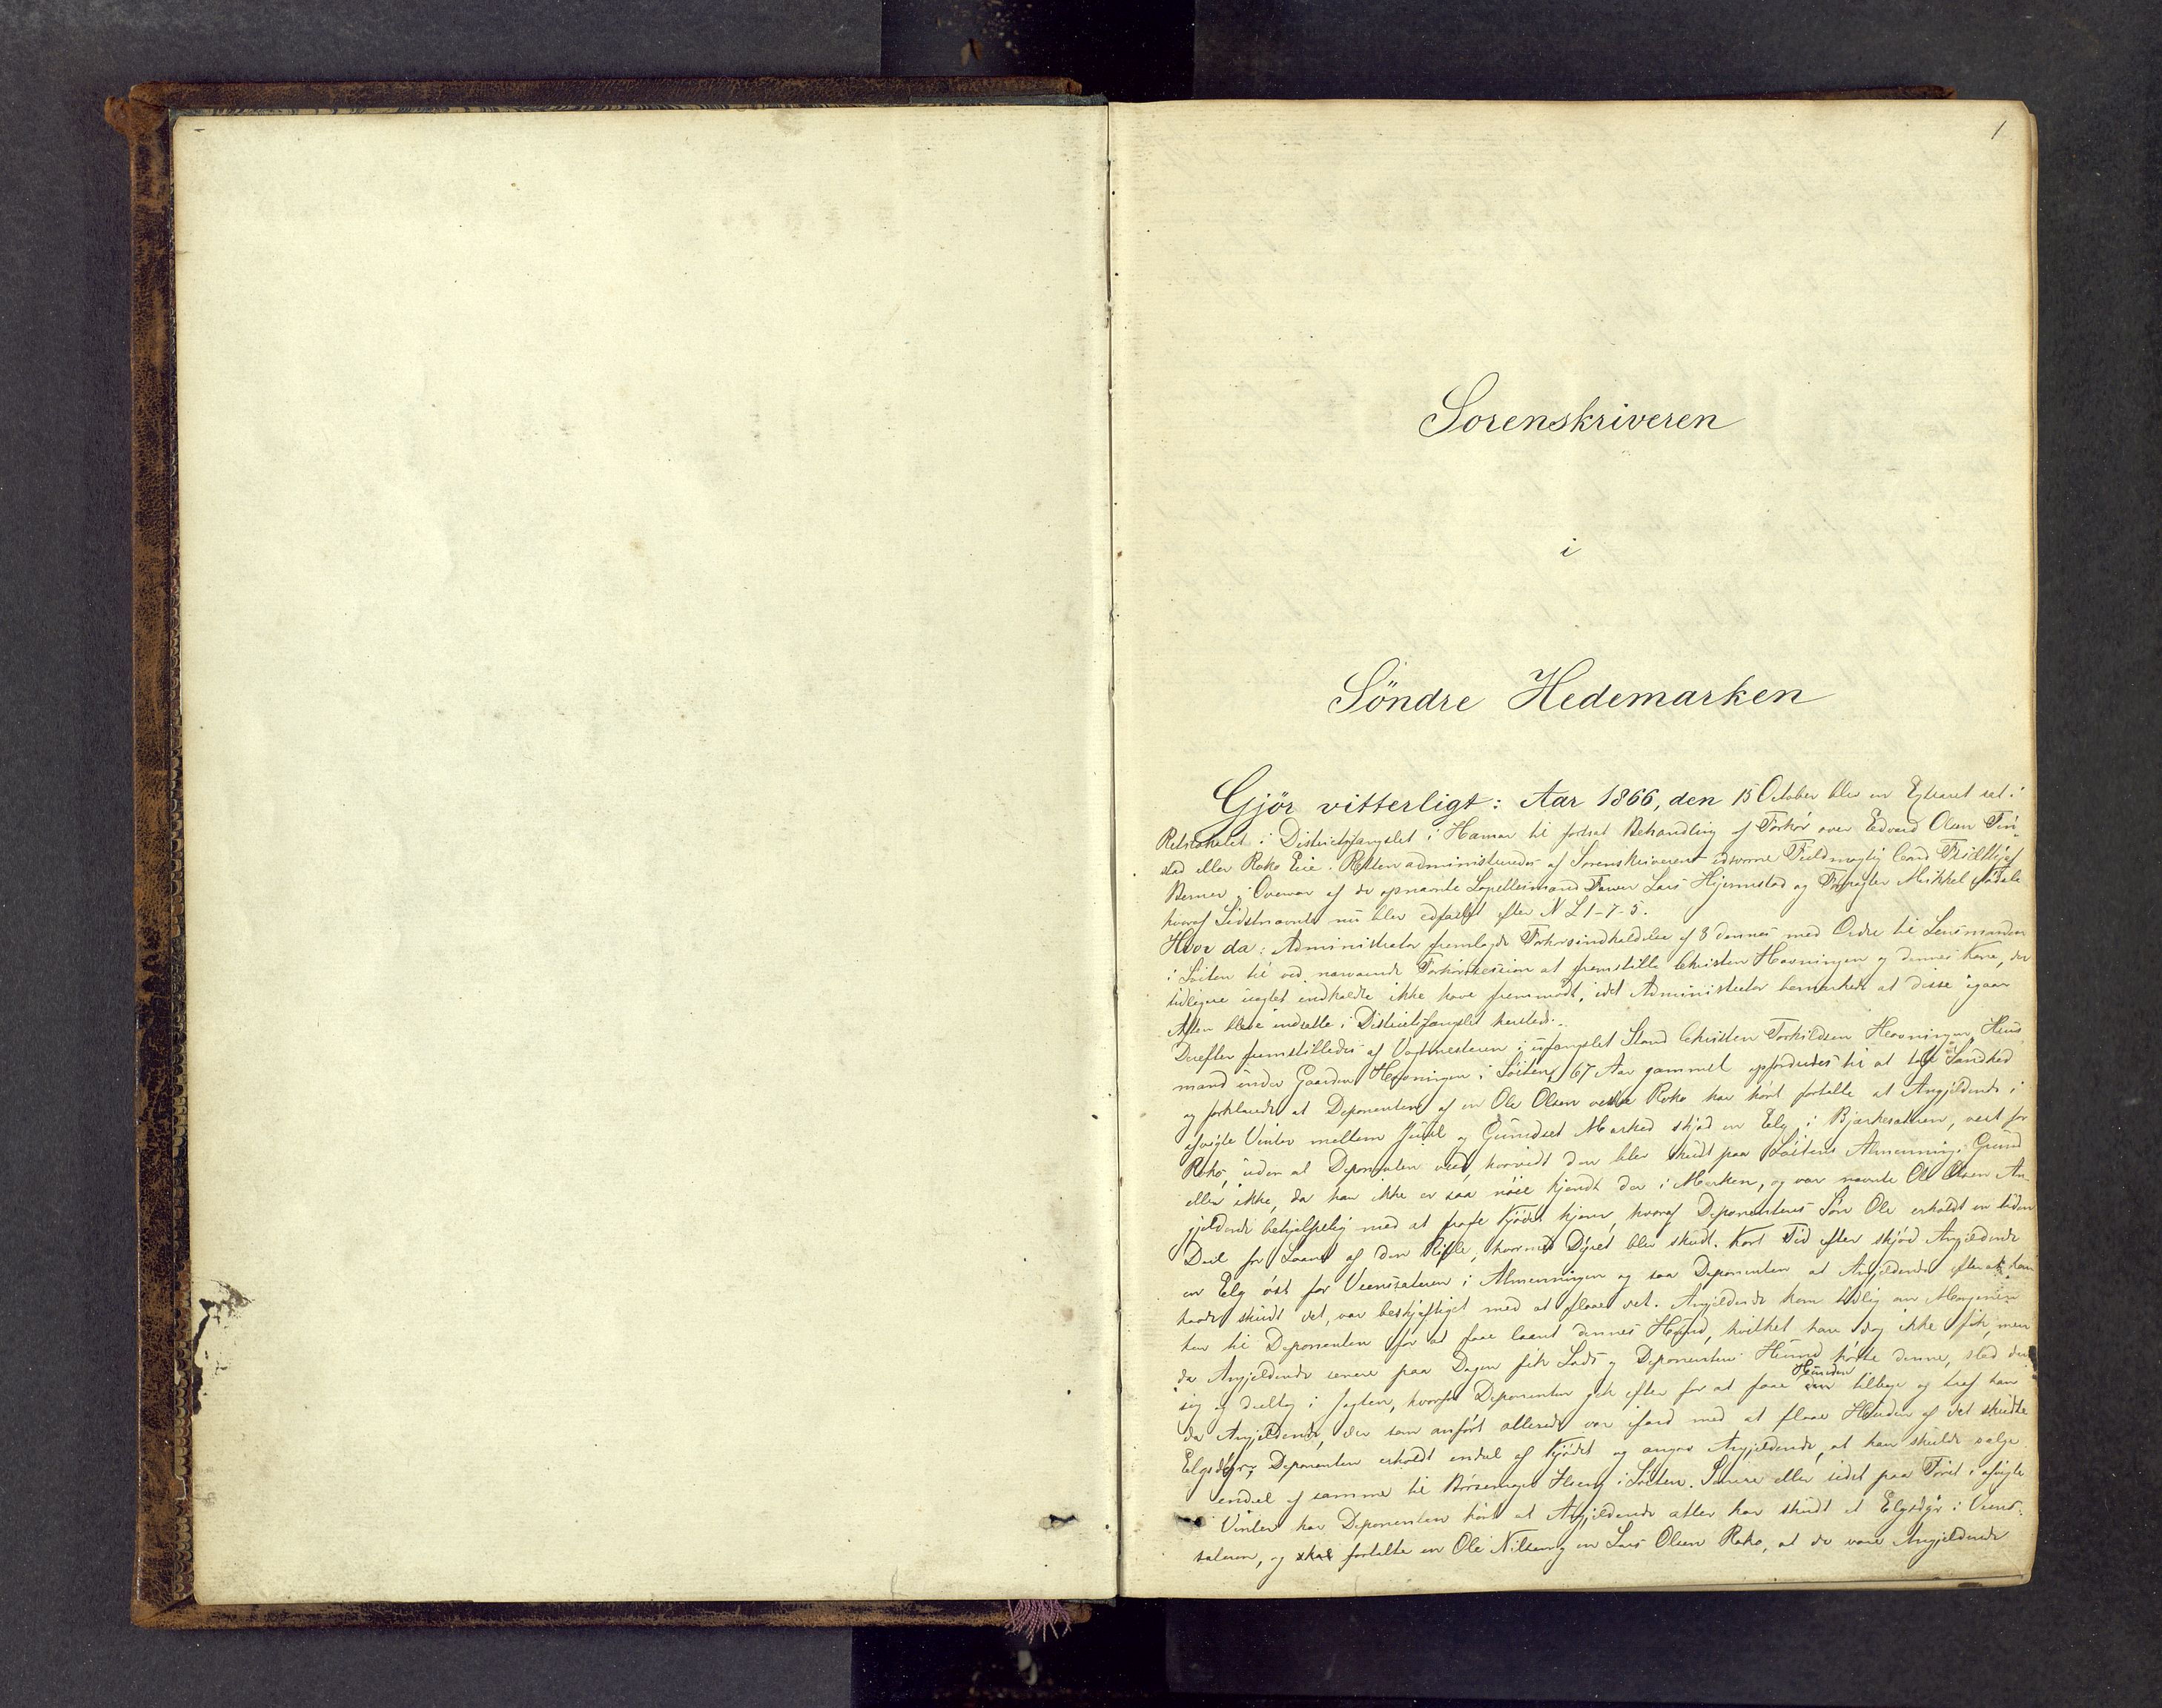 1
Sorenskriveren
i
Söndre Hedemarken
Gjör vitterligt: Aar 1866, den 15 October blev en Extraret sat i
Retslokalet i Districtsfængslet i Hamar til fortsat Behandling af Forhör over Edvard Olsen Fin-
stad eller Roko Eie. Retten administreredes af Sorenskriverens edsvorne Fuldmægtig Cand.
Berner i Overvær af de opnævnte Lars Hjemstad og Mikkel
hvoraf Sidstnævnte nu blev edfæstet efter N L 1-7-5.
Hvor da: Administrator fremlagde Forhörsindkaldelse af 8 dennes med Ordre til Lensmanden
i Löiten til ved nærværende Forhörssession at fremstille Christen Hovningen og dennes Kone, der
tidligere uagtet indkaldte ikke have fremmödt, idet Administrator bemærkede at disse igaar
Aften bleve indsatte i Districtsfængslet hersteds.
Derefter fremstilledes af Vagtmesteren i ufængslet Stand Christen Torkildsen Hovningen, Huus
mand under Gaarden Hovningen i Löiten, 67 Aar gammel opfordredes til at Sandhed
og forklarede at Deponenten af en Ole Olsen Roko har hört fortælle at Angjeldende i
afvigte Vinter mellem Juul og Gundset Marked skjöd en Elg i Bjørkesæteren, vest for
Roko, uden at Deponenten veed, hvorvidt den blev skudt paa Löitens Almennings Grund
eller ikke, da han ikke er saa nöie kjendt der i Marken, og var nævnte Ole Olsen An-
gjeldende behjelpelig med at fragte Kjödet hjem, hvoraf Deponentens Sön Ole erholdt en liden
Deel for Laanet af den Rifle, hvormed Dyret blev skudt. Kort Tid efter skjöd Angjeldende
en Elg öst for Veensæteren i Almenningen og saa Deponenten at Angjeldende efterat han
havde skudt det, var beskjæftiget med at flaae det. Angjeldende kom tidlig om Morgenen
hen til Deponenten for at faae laant dennes Hund, hvilket han dog ikke fik, men
da Angjeldende senere paa Dagen fik Lods og Deponentens Hund hörte denne, slod den
sig og deeltog i Jagten, hvorfor Deponenten gik efter for at faae Hunden tilbage og traf han
da Angjeldende, der som anfört allerede var ifærd med at flaae Huden af det skudte
Elgsdyr; Deponenten erholdt endeel af Kjödet og angav Angjeldende, at han skulde sælge
endeel af samme til Börsemager i Löiten. Senere eller sidst paa Föret i afvigte
Vinter har Deponenten hört at Angjeldende atter har skudt et Elgsdyr i Veens-
sæteren, og fortalte en Ole Nilsen og en Lars Olsen Roko, at de vare Angjeldende